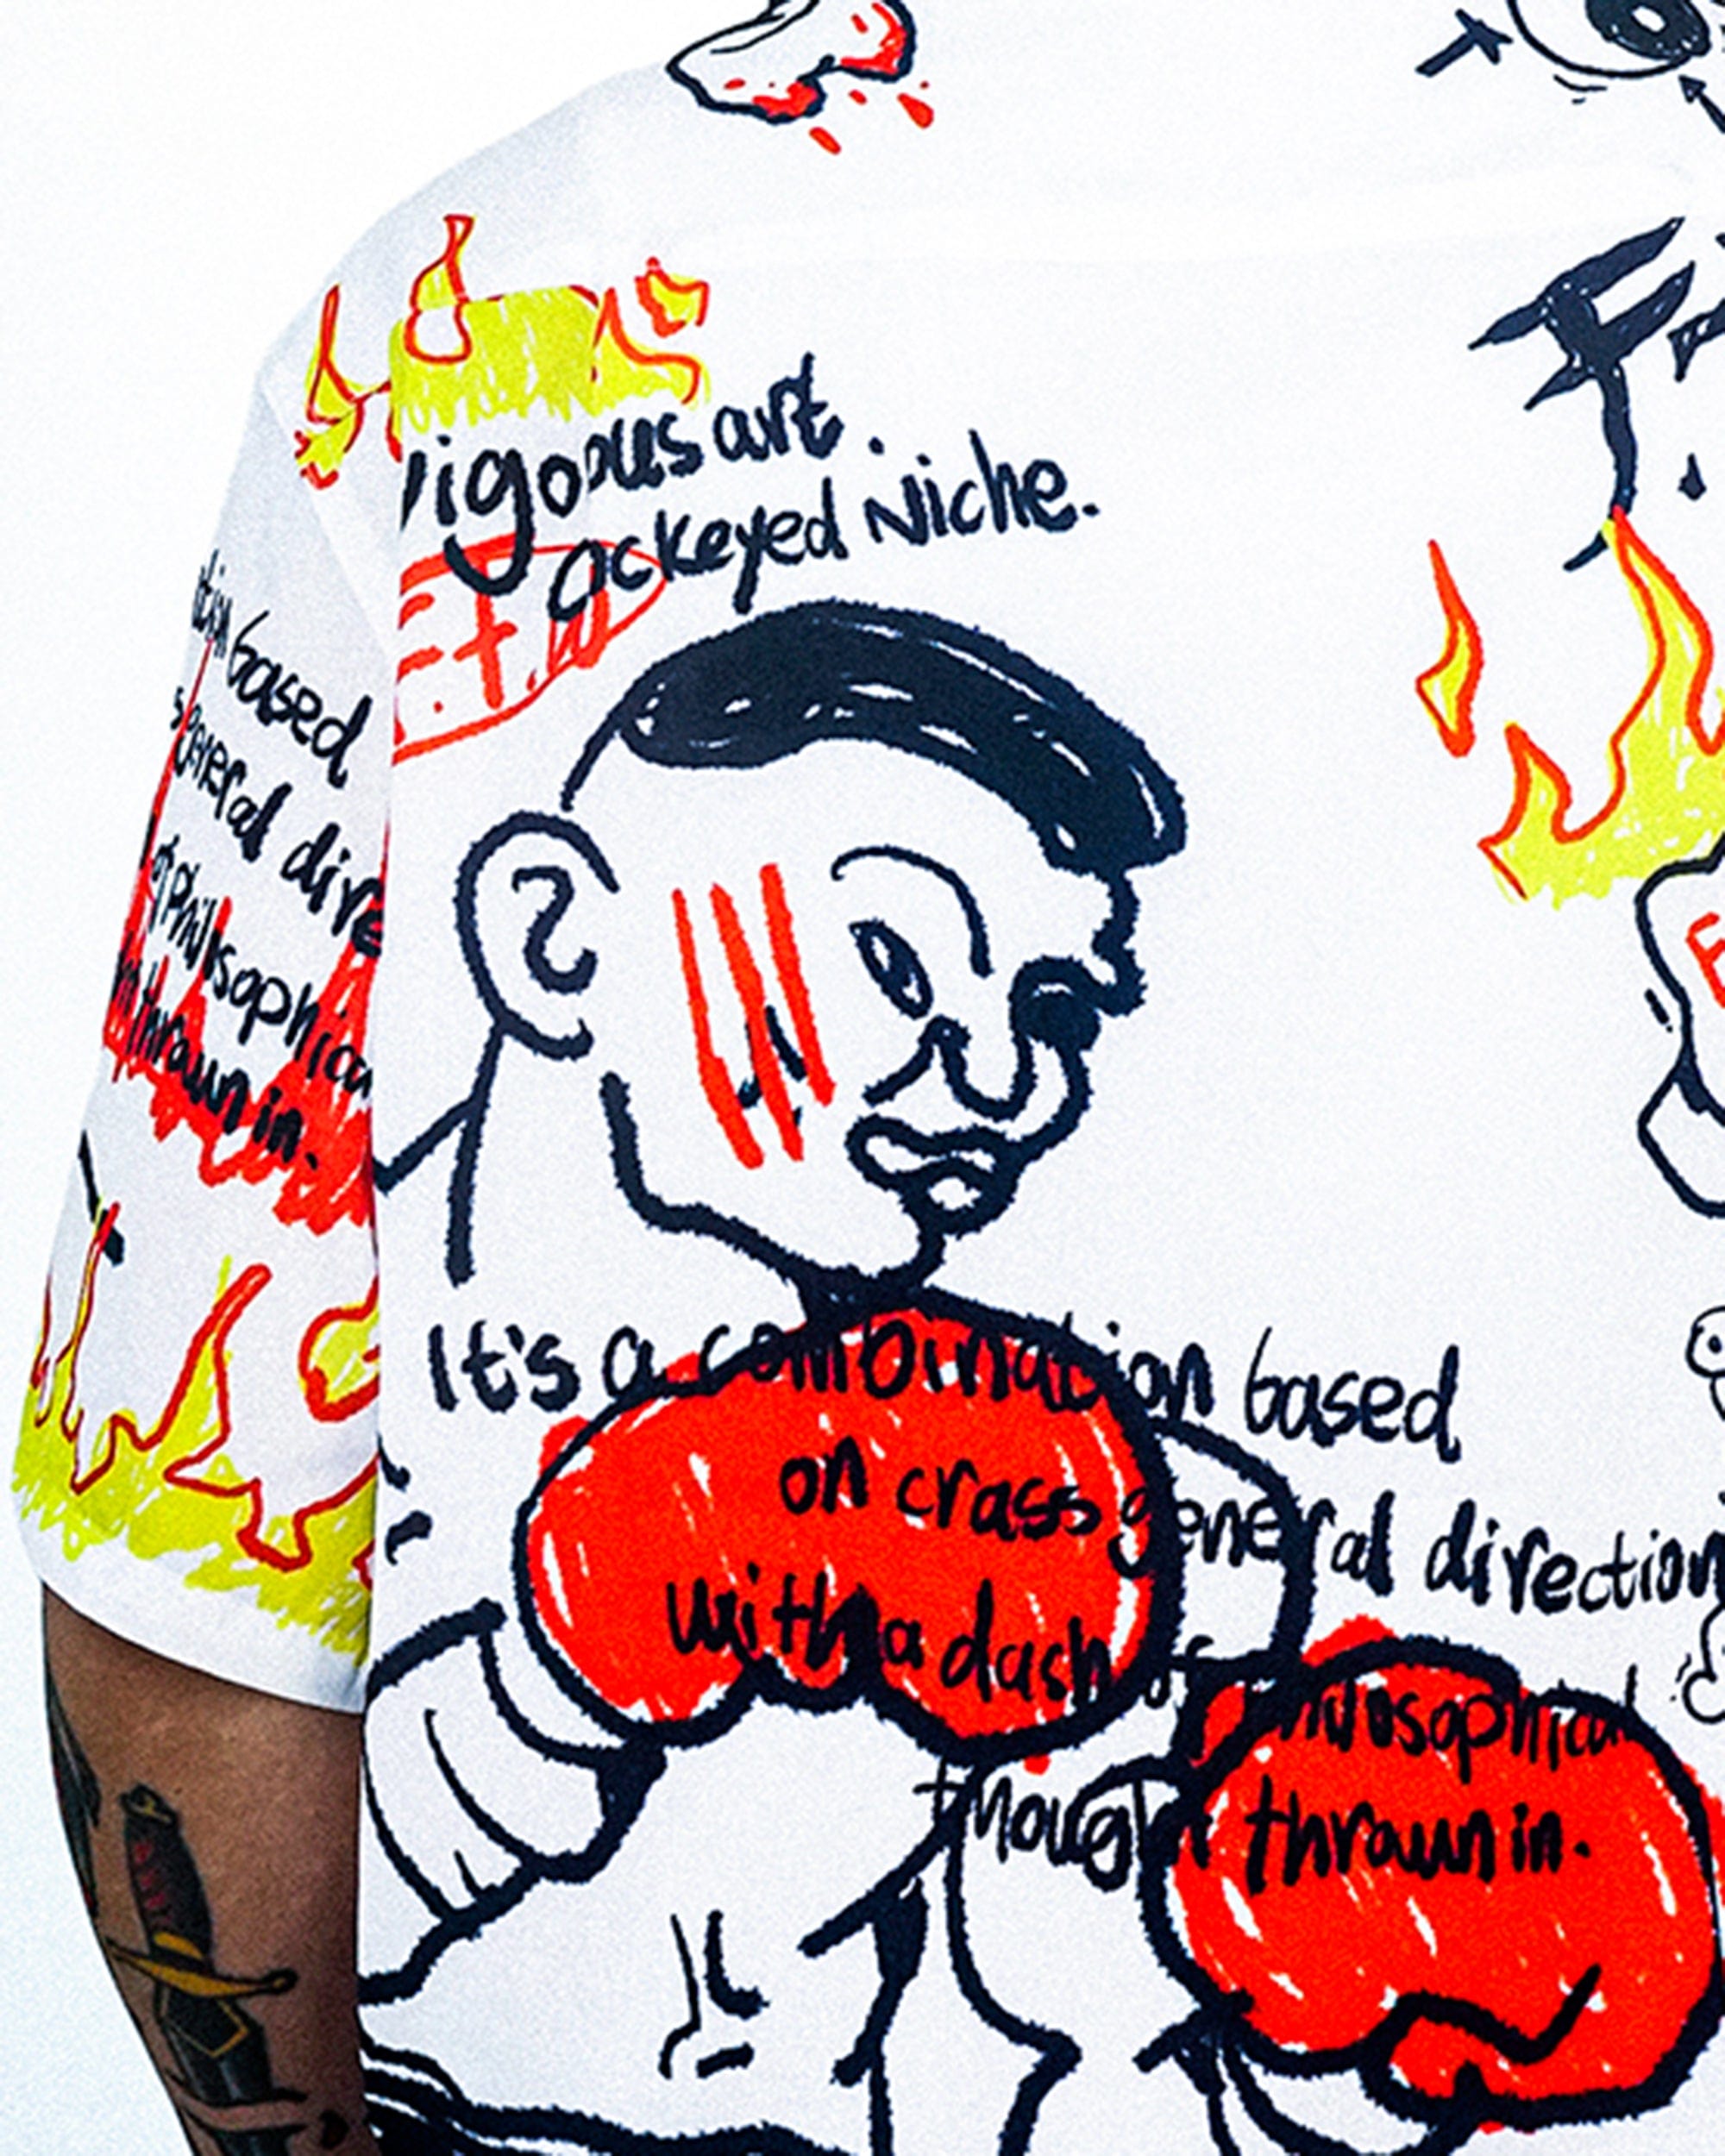 igorus art.
ockeyed Niche.
based
several dire
Philisophica
thrown in.
It's a combination based
on crass general direction
with a dash of philosophical
thought thrown in.